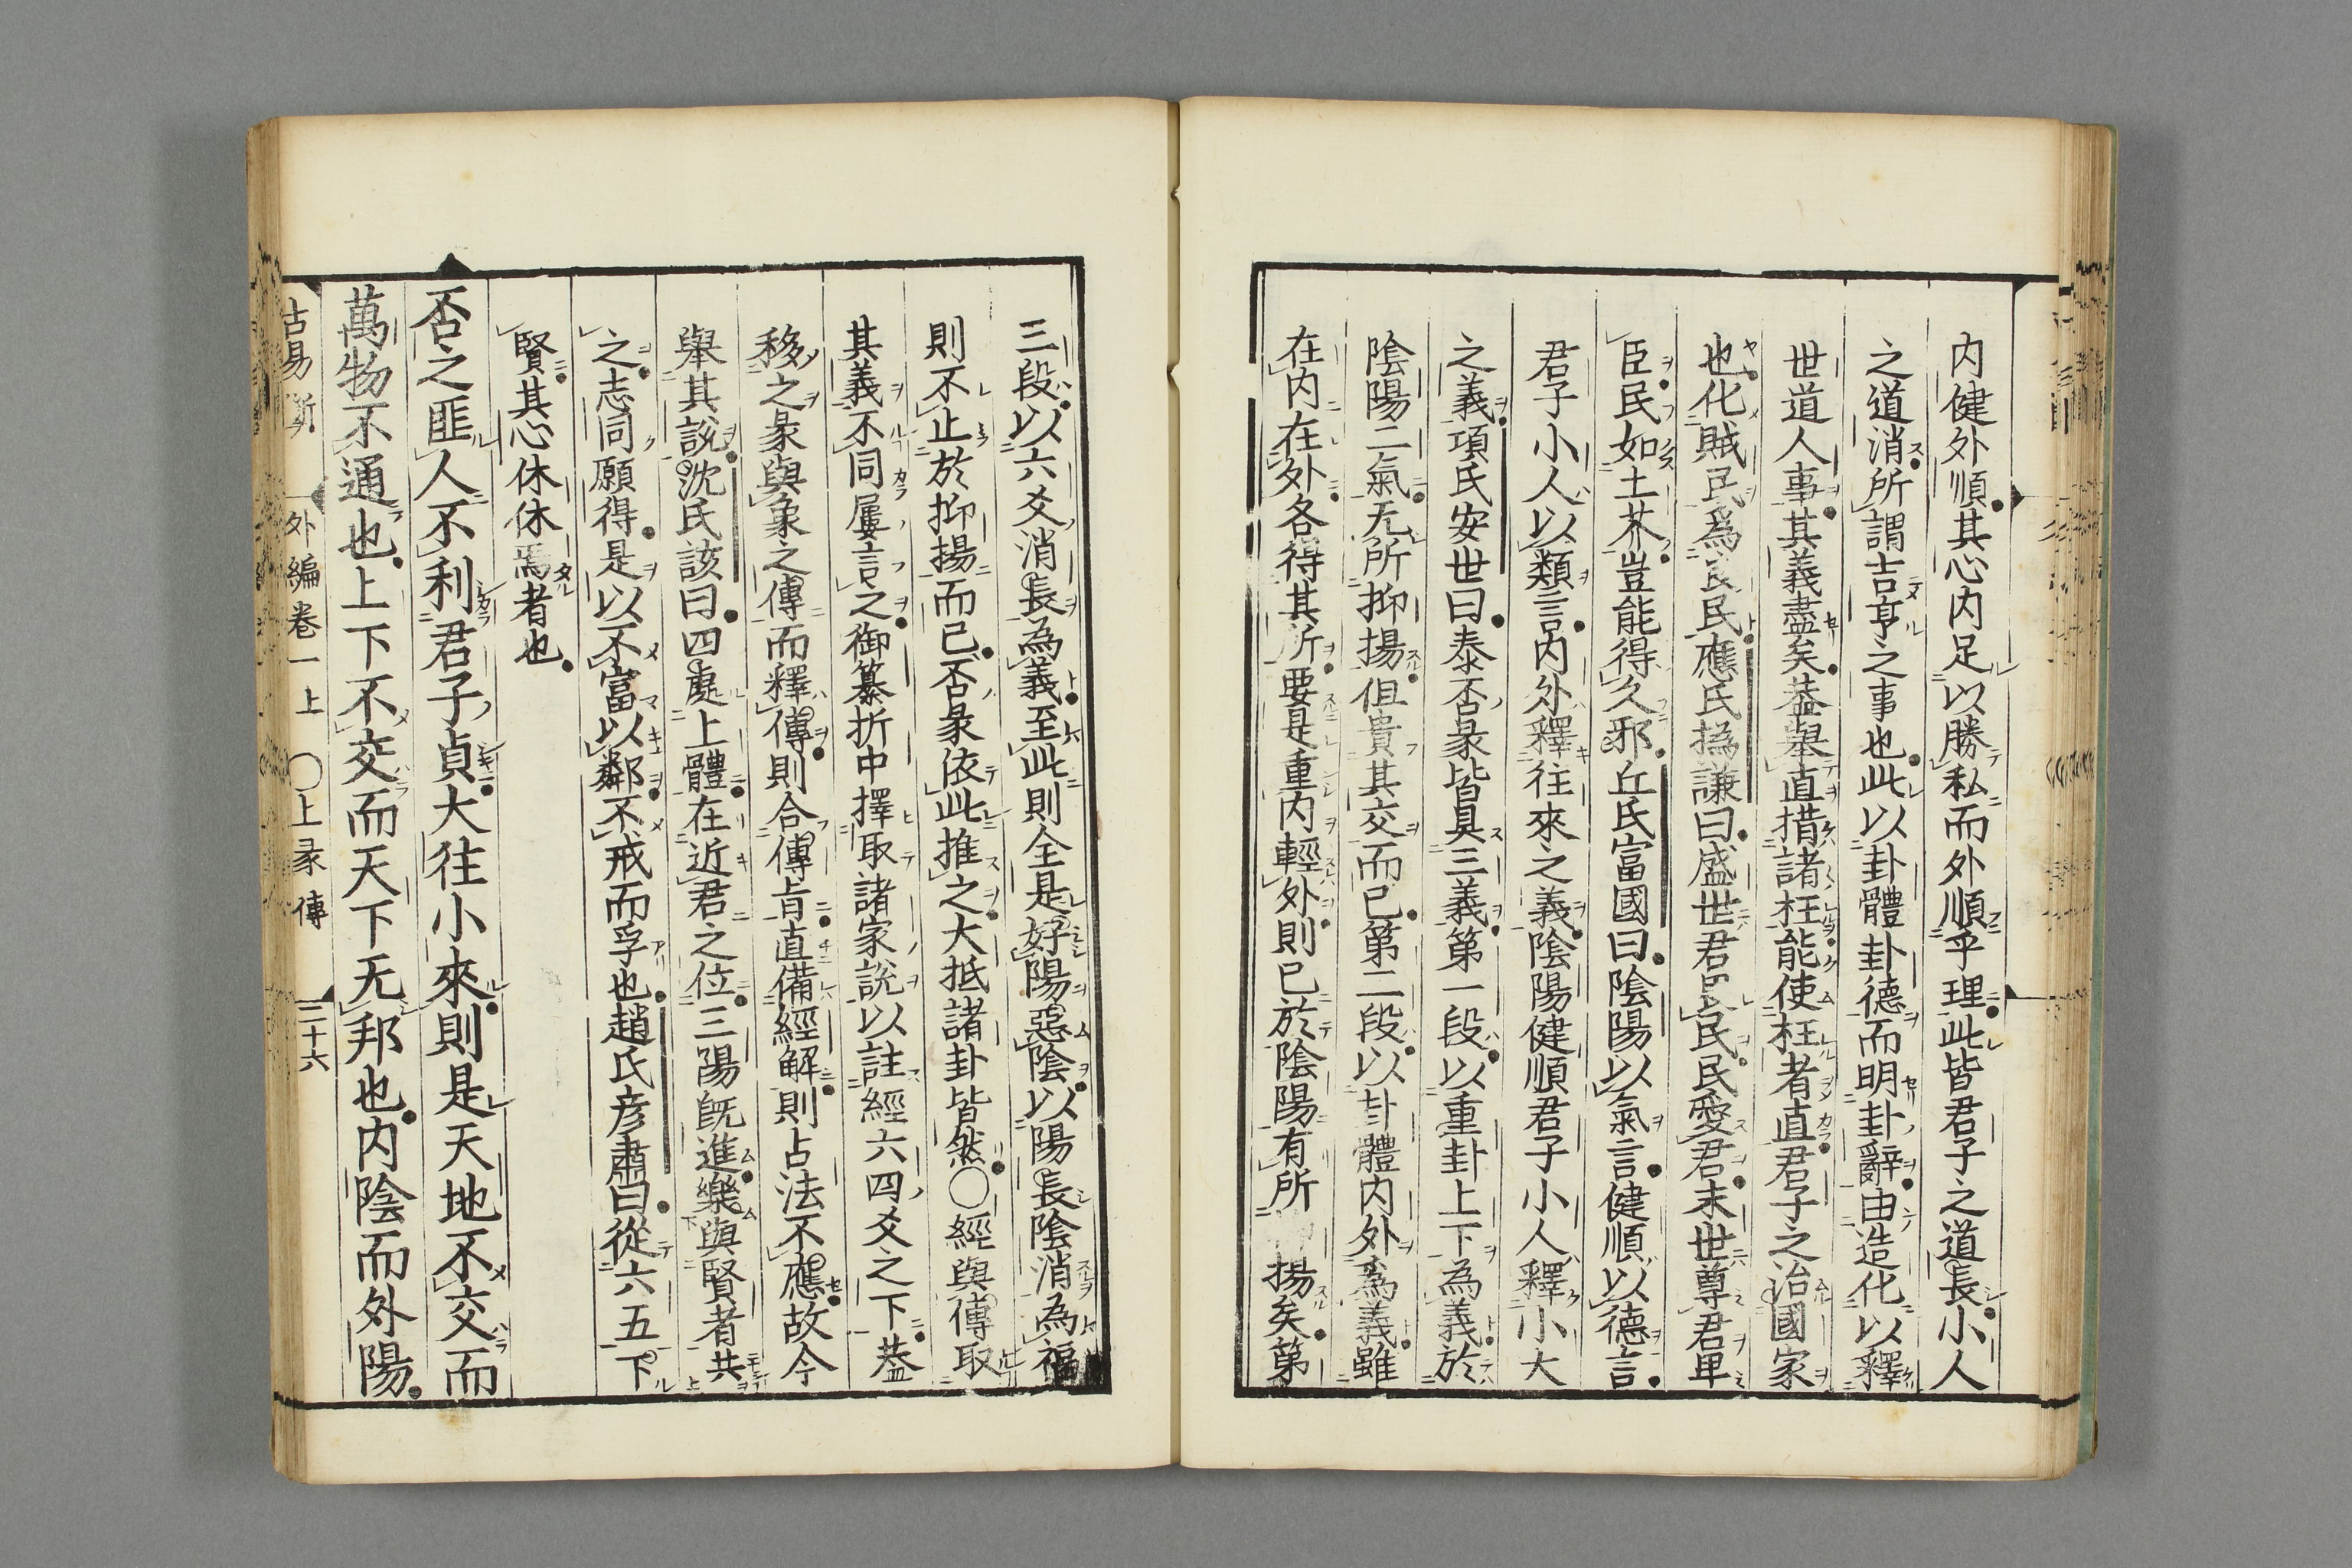 内健外順其心内足以勝私而外順乎理此皆君子之道長小人
之道消所謂吉亨之事也此以卦體卦德而明卦辭由造化以釋
世道人事其義盡矣葢舉直措諸枉能使枉者直君子之治國家
也化賊民為良民應氏撝謙曰盛世君民民愛君末世尊君卑
臣民如土芥豈能得久邪丘氏富國曰陰陽以氣言健順以德言
君子小人以類言内外釋往來之義陰陽健順君子小人釋小大
之義項氏安世曰泰否彖皆具三義第一段以重卦上下為義於
陰陽二氣无所抑揚但貴其交而已第二段以卦體内外為義雖
在内在外各得其所要是重内輕外則已於陰陽有所揚矣第
三段以六爻消長為義至此則全是好陽惡陰以陽長陰消為福
則不止於抑揚而已否彖依此推之大抵諸卦皆然〇經與傳取
其義不同屢言之御纂折中擇取諸家說以註經六四爻之下葢
移之彖與象之傳而釋傳則合傳旨直備經解則占法不應故今
舉其説沈氏該曰四處上體在近君之位三陽既進樂與賢者共
之志同願得是以不富以鄰不戒而孚也趙氏彦肅曰從六五下
賢其心休休焉者也
否之匪人不利君子貞大往小來則是天地不交而
萬物不通也上下不交而天下无邦也内陰而外陽
古易斷 外編卷一上 〇上彖傳 三十六